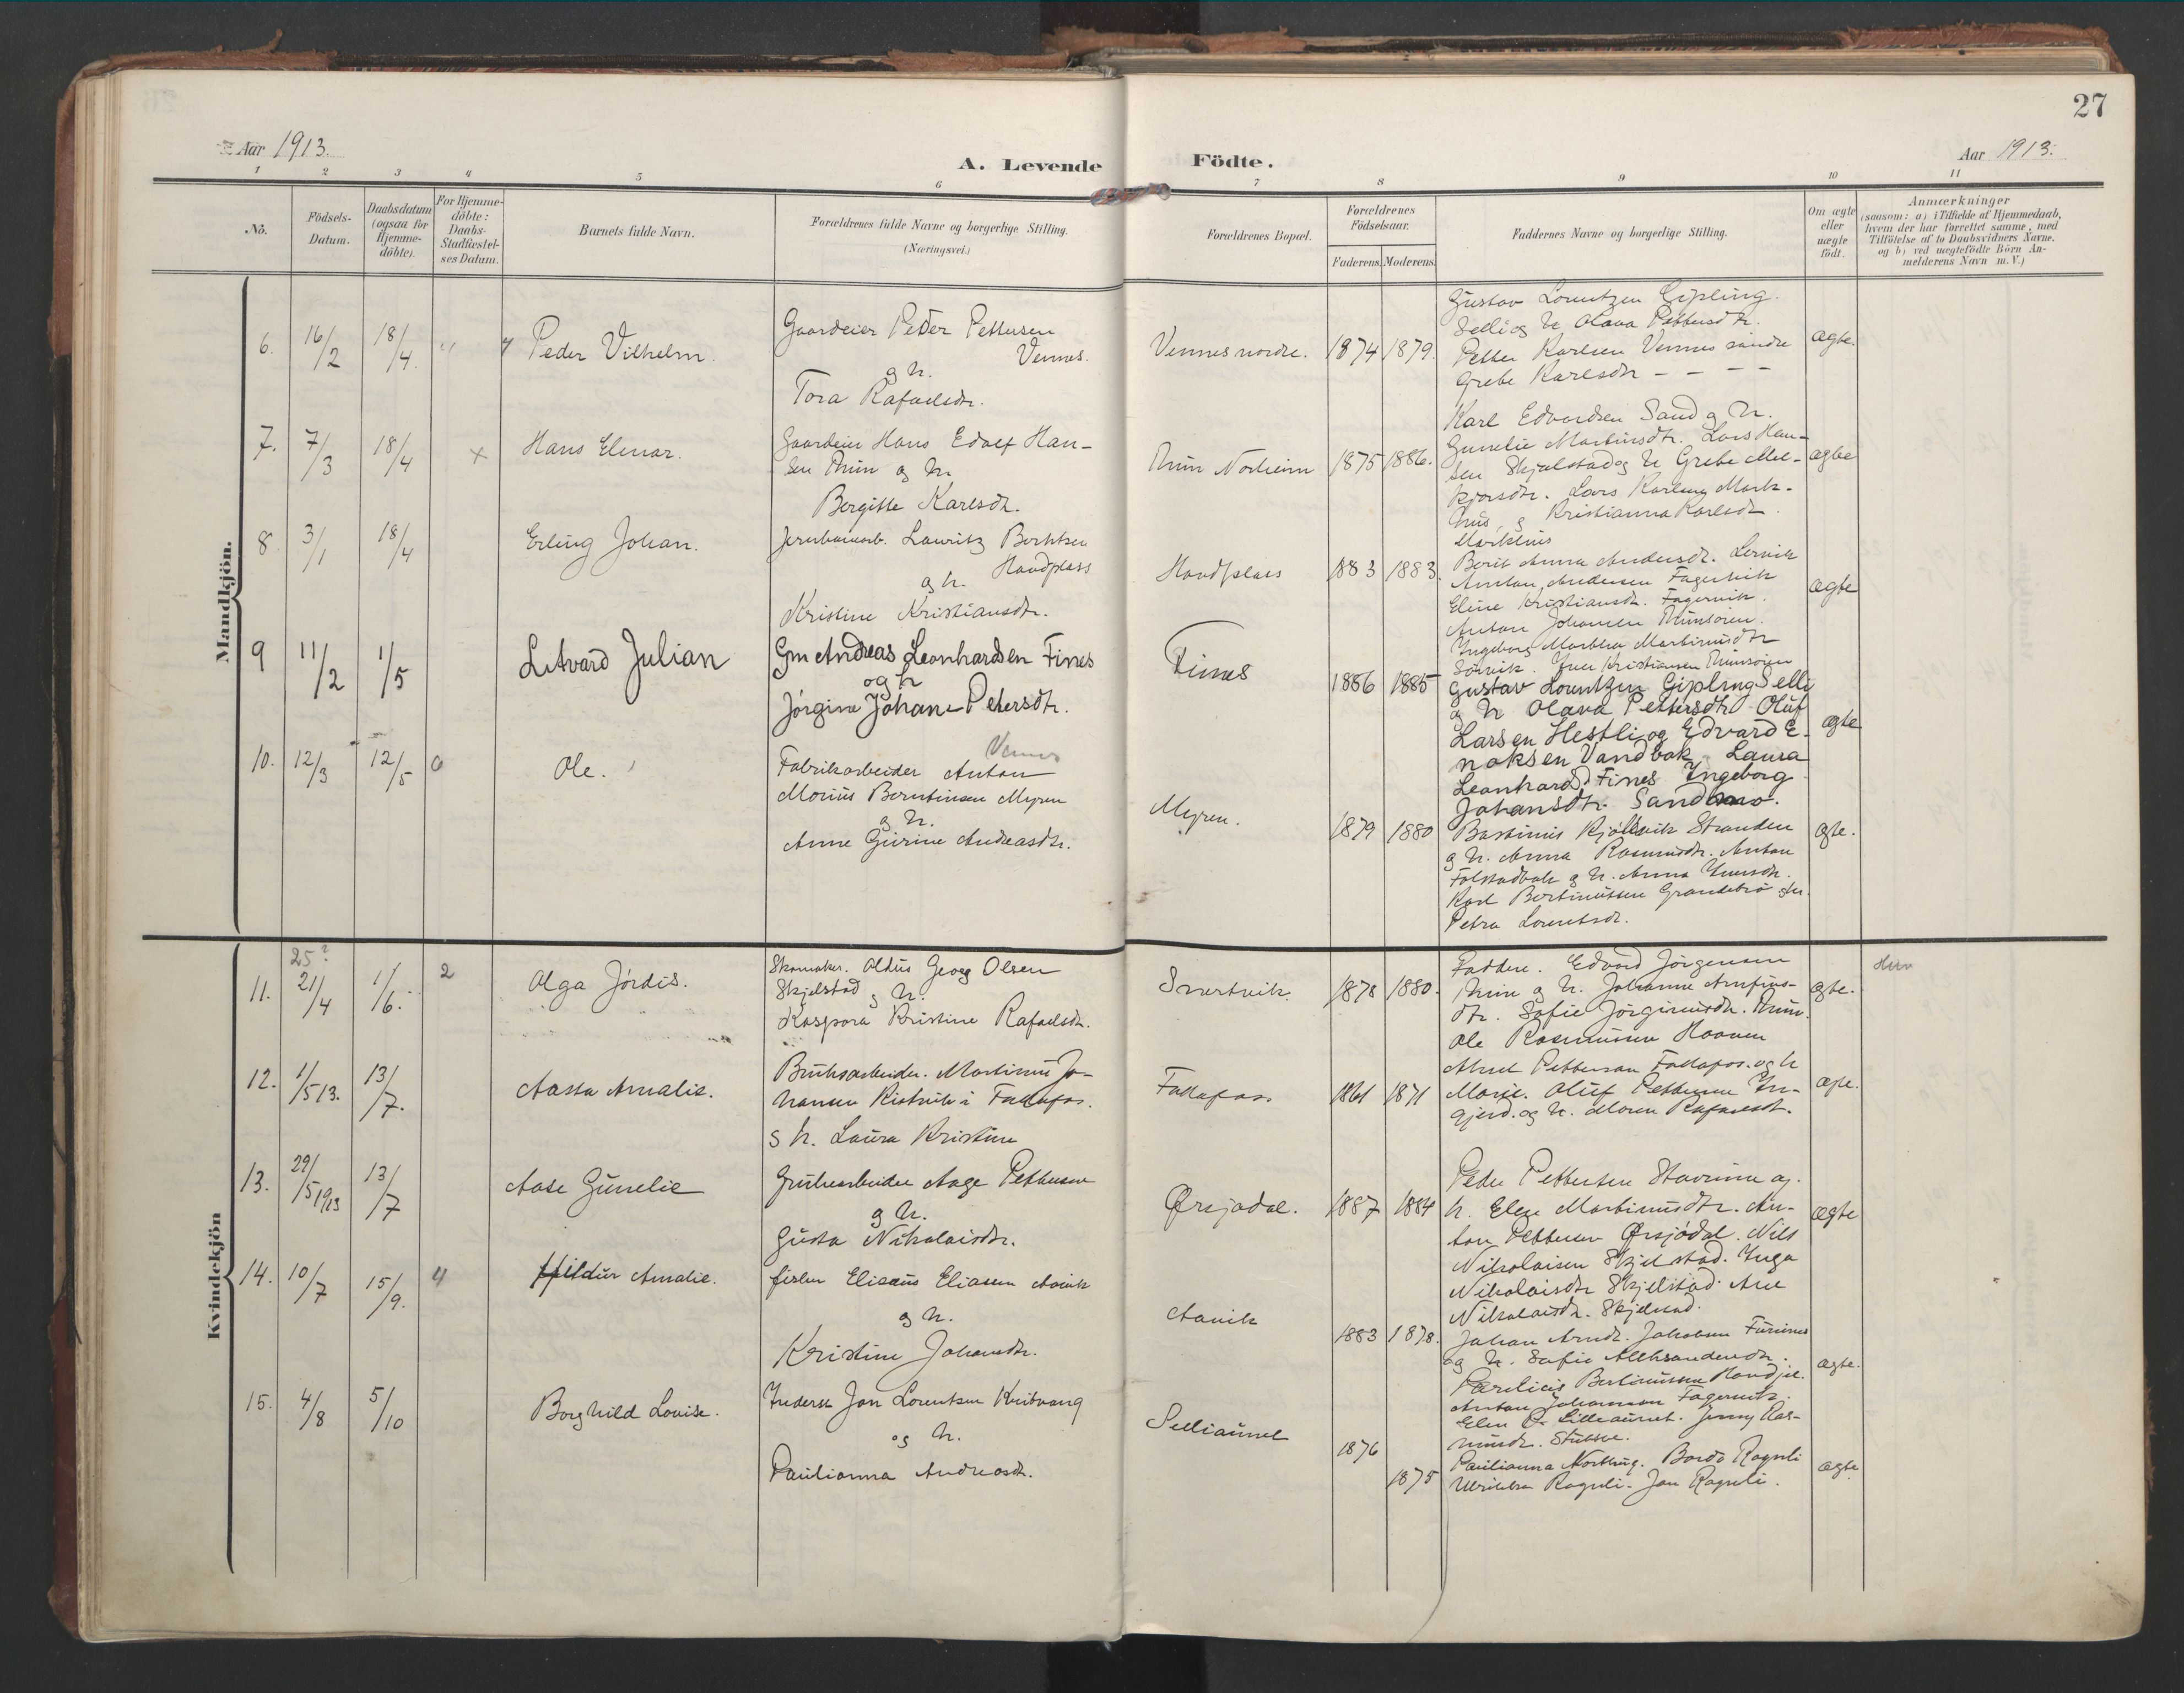 27
Aar 1913.
A. Levende Födte.
Aar 1913.
1 2 3 4 5 6 7 8 9 10 11
No.
Födsels-
Datum.
Daabsdatum
(ogsaa for
Hjemme-
döbte).
For Hjemme-
döbte:
Daabs-
Stadfæstel-
ses Datum.
Barnets fulde Navn.
Forældrenes fulde Navne og borgerlige Stilling.
(Næringsvei.)
Forældrenes Bopæl.
Forældrenes
Födselsaar.
Faderens. Moderens.
Faddernes Navne og borgerlige Stilling.
Om ægte
eller
uægte
födt.
Anmærkninger
(saasom: a) i Tilfælde af Hjemmedaab,
hvem der har forrettet samme, med
Tilföielse af to Daabsvidners Navne.
og b) ved uægtefödte Börn An-
melderens Navn m. V.)
Mandkjön.
6. 16/2 18/4 " Peder Vilhelm.
Gaardeier Peder Pettersen
Vennes.
og h.
Tora Rafaelsdtr.
Vennes nordre. 1874 1879.
Gustav Lorentzen Gipling
Selli og h. Olava Pettersdtr.
Petter Karlsen Vennes söndre
Grete Karlsdtr - - - -
ægte.
7. 7/3 18/4 x Hans Elenar.
Gaardeier Hans Edolf Han-
sen Thun og h.
Bergitte Karlsdtr.
Thun Norheim 1875 1886.
Karl Edvardsen Sand og h.
Gunelie Martinsdtr. Lars Han-
sen Skjelstad og h. Grete Mel-
kjorsdtr. Lars Karlsen Mark-
hus, og Kristianna Karlsdtr
Markhus
ægte
8. 3/1 18/4 Erling Johan.
Jernbanearb. Lauritz Berntsen
Haudplass
og h.
Kristine Kristiansdtr.
Haudplass 1883 1883.
Berit Anna Andersdtr. Lervik
Anton Andersen Fagervik
Eline Kristiansdtr. Fagervik.
Anton Johansen Thunsöien.
Ingeborg Marthea Martinusdtr
Sörvik. Iver Kristiansen Thunsöien
ægte
9 11/2 1/5 Litvard Julian
Gm Andreas Leonhardsen Fines
og h
Jörgine Johane Petersdtr.
Finnes 1886 1885
Gustav Lorentzen Gipling Selli
og h Olava Pettersdtr Oluf
Larsen Hestli og Edvard E-
noksen Vandbak Laura
Leonhardsd Fines Ingeborg
Johansdtr. Sandmo.
ægte
10. 12/3 12/5 0 Ole.
Vennes
Fabrikarbeider Anton
Morius Berntinsen Myren
og h.
Anne Gurine Andreasdtr.
Myren. 1879 1880
Bastinus Kjölsvik Stranden
og h. Anna Rasmusdtr. Anton
Folstadbak og h. Anna Iversdtr.
Karl Bertinussen Grandebrö og h.
Petra Lorentsdtr.
ægte.
Kvindekjön
25?
11. 21/4 1/6. 2 Olga Jördis.
Skomaker. Aldus Georg Olsen
Skjelstad og h.
Kaspara Kristine Rafaelsdtr.
Snertvik. 1878 1880.
Faddere. Edvard Jörgensen
Thun og h. Johanne Arnfins-
dtr. Sofie Jörginusdtr. Thun.
Ole Rasmussen Haaven
ægte.
12. 1/5 13. 13/7. Aasta Amalie.
Bruksarbeider. Martinus Jo-
hansen Kistvik i Follafos.
og h. Laura Kristine
Follafos. 1861 1871
Pettersen Follafos. og h
Marie. Oluf Pettersen In-
gjerd. og h.
ægte.
13. 29/5 1913 13/7 Aase Gunelie
Grubearbeider Aage Pettersen
og h.
Gusta Nikolaisdtr.
Ørsjødal. 1887 1884
Peder Pettersen Stavrum og
h. Elen Martinusdtr. An-
ton Pettersen Ørsjödal. Nils
Nikolaisen Skjelstad. Inga
Nikolaisdtr Skjelstad. Ane
Nikolaisdtr. Skjelstad.
ægte
14. 10/7 15/9. 4 Hildur Amalie.
fisker Elisæus Eliasen Aavik
og h.
Kristine Johansdtr.
Aavik 1883 1878.
Johan Arndt. Jakobsen Furunes
og h. Sofie Aleksandersdtr.
Bertinussen
Anton Johannsen Fagervik.
Elen P. Lilleaunet. Jenny Ras-
musdtr.
ægte.
15. 4/8 5/10 Borghild Louise.
Inderst Jon Lorentsen Kvitvang
og h.
Paulianna Andreasdtr.
Selliaunet 1876
1875
Paulianna Nordhug. Bardo Rognli
Ulrikka Rognli. Jon Rognli.
ægte